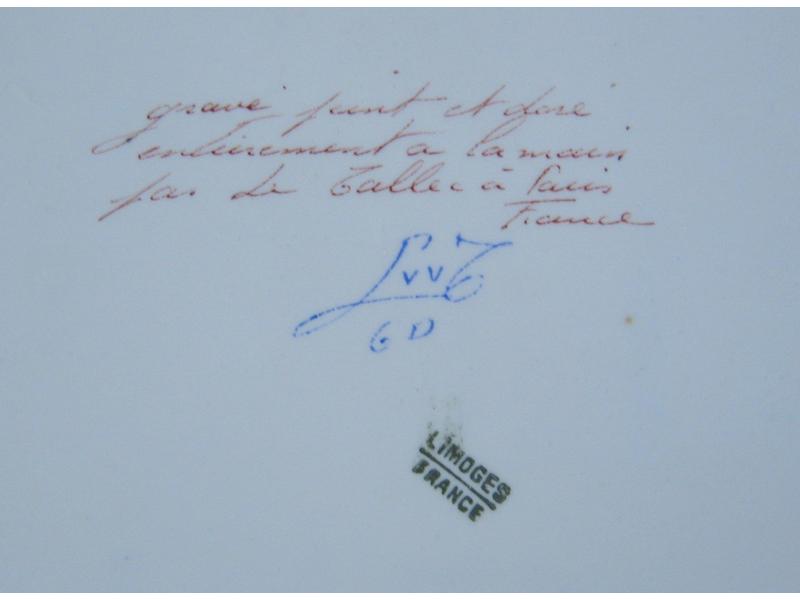 gravé peint et doré
entièrement a la main
par Le Tallec à Paris
France
L vv T
GD
LIMOGES
FRANCE